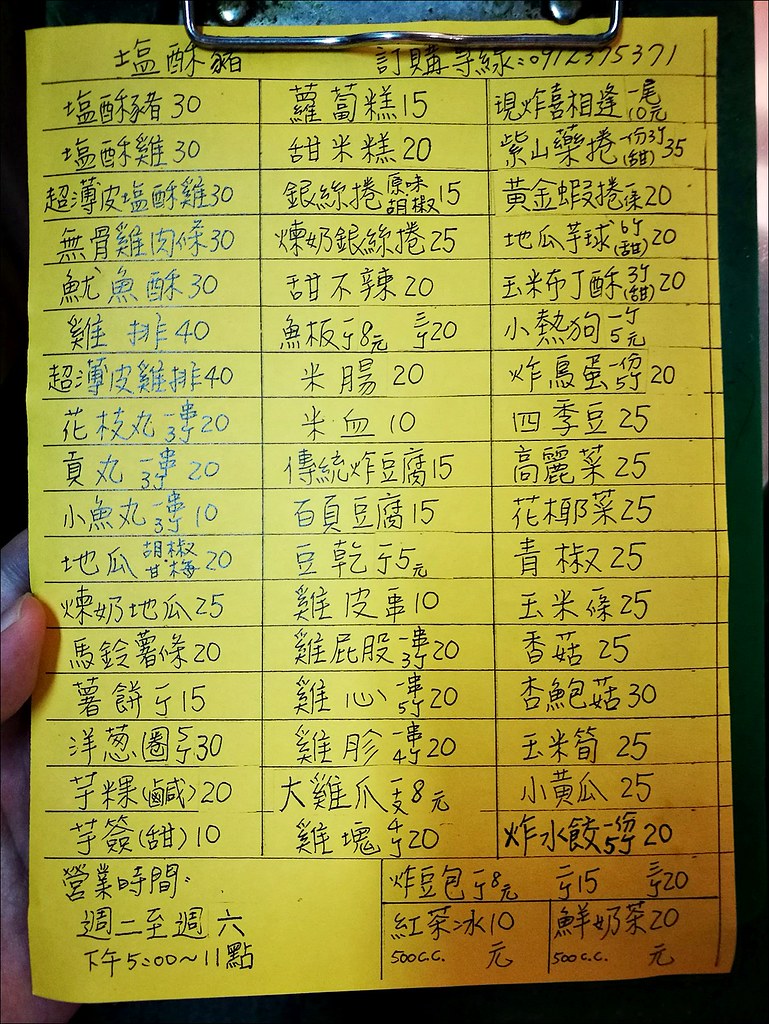 塩酥豬 訂購專線:0912375371
塩酥豬30 蘿蔔糕15 現炸喜相逢一尾10元
塩酥雞30 甜米糕20 紫山藥捲一份3个(甜)35
超薄皮塩酥雞30 銀絲捲原味胡椒15 黃金蝦捲一條20
無骨雞肉條30 煉奶銀絲捲25 地瓜芋球6个(甜)20
魷魚酥30 甜不辣20 玉米布丁酥3个(甜)20
雞排40 魚板一个8元 三个20 小熱狗一个5元
超薄皮雞排40 米腸20 炸鳥蛋一份5个20
花枝丸一串3个20 米血10 四季豆25
貢丸一串3个20 傳統炸豆腐15 高麗菜25
小魚丸一串3个10 百頁豆腐15 花椰菜25
地瓜胡椒甘梅20 豆乾一个5元 青椒25
煉奶地瓜25 雞皮串10 玉米條25
馬鈴薯條20 雞屁股一串3个20 香菇25
薯餅一个15 雞心一串5个20 杏鮑菇30
洋葱圈5个30 雞胗一串4个20 玉米筍25
芋粿(鹹)20 大雞爪一支8元 小黃瓜25
芋簽(甜)10 雞塊4个20 炸水餃一份5个20
營業時間:
週二至週六
下午5:00~11點
炸豆包一个8元 二个15 三个20
紅茶冰10元 500c.c.
鮮奶茶20元 500c.c.